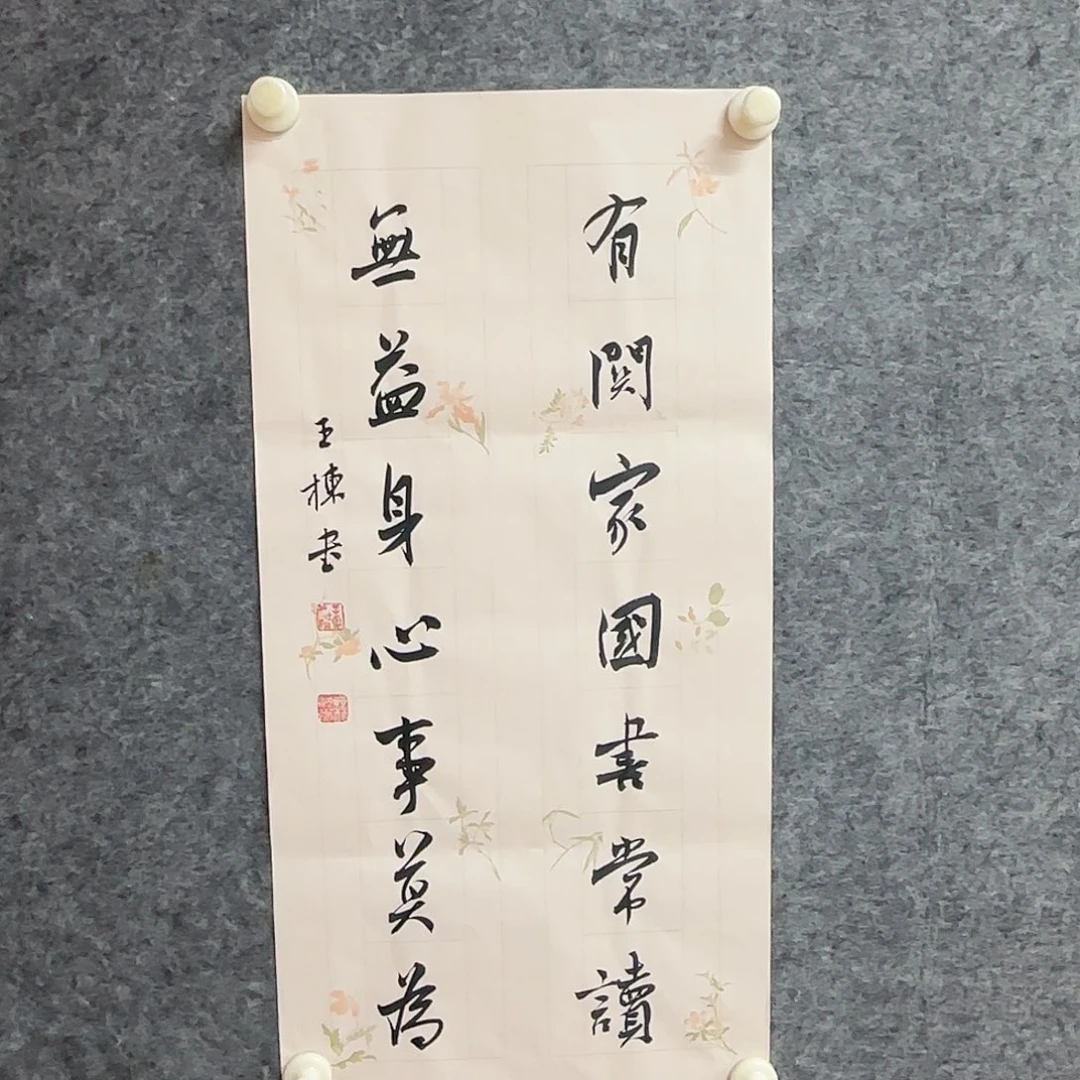 有關家國書常讀
無益身心事莫為
王棟书